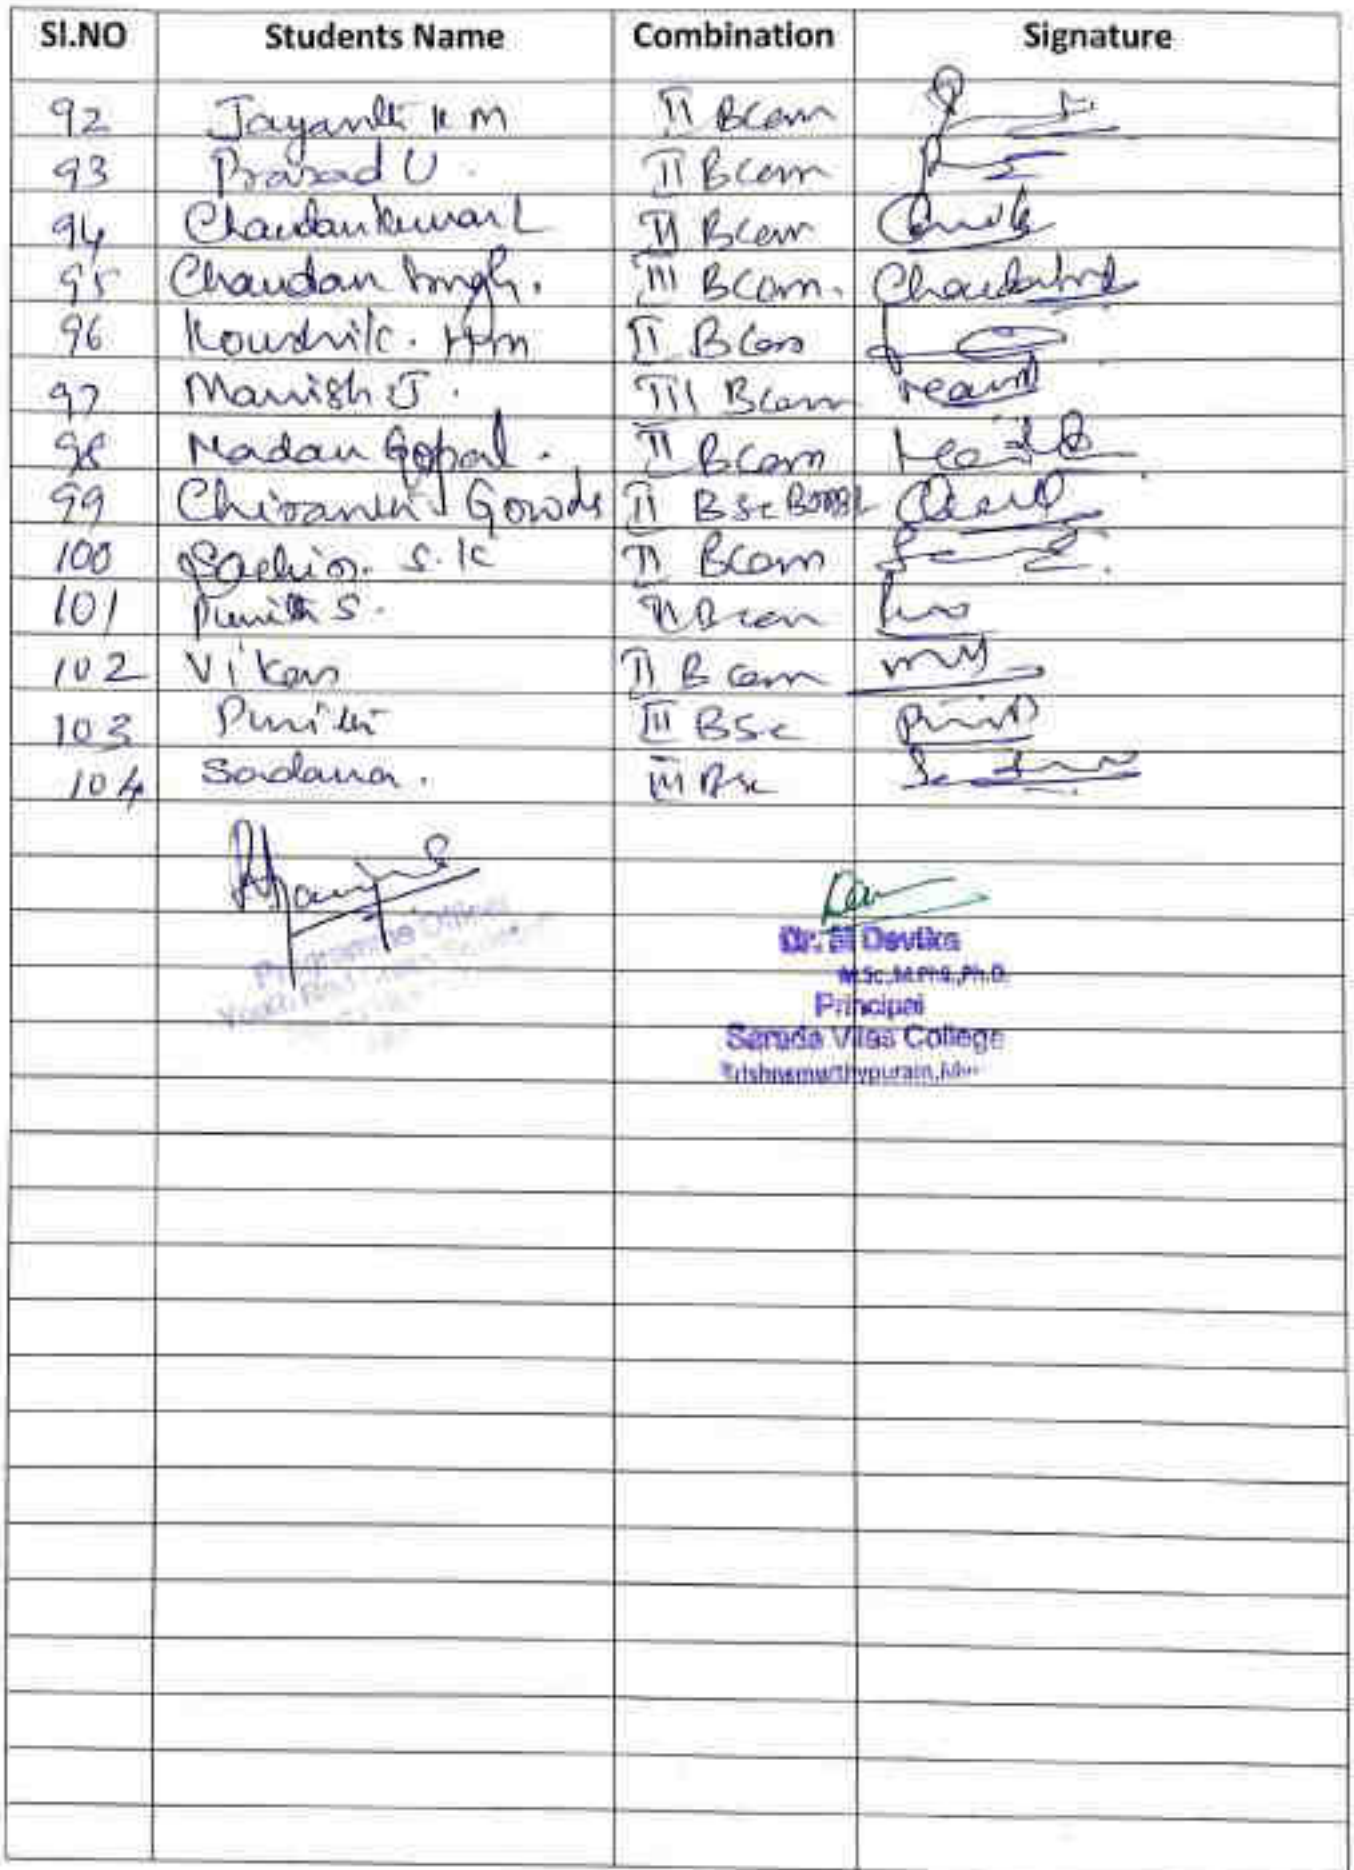 Sl.NO Students Name Combination Signature
92 Jayanth K M II BCom
93 Prasad U. II BCom
94 Chandan Kumar L II BCom
95 Chandan Singh. III BCom.
96 Koushik. H M II BCom
97 Manish J. III BCom
98 Madan Gopal. II BCom
99 Chiranth Gowda II BSc
100 Sachin. S.K II BCom
101 Punith S. II BCom
102 Vikas II B Com
103 Punith III BSc
104 Sadana. III BSc
Programme Officer
Dr. M Devika
M.Sc.,M.Phil.,Ph.D.
Principal
Sarada Vilas College